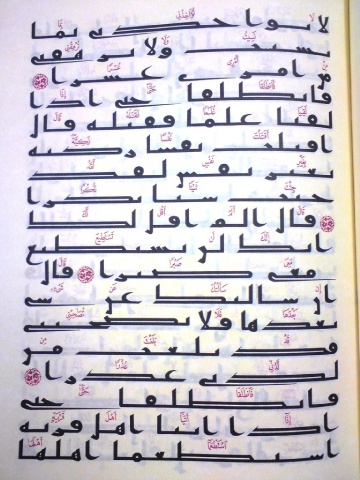 لا تؤاخذني بما
نسيت ولا ترهقني
من امري عسرا
فانطلقا حتى اذا
لقيا غلما فقتله قال
اقتلت نفسا زكية
بغير نفس لقد
جئت شيئا نكرا
قال الم اقل لك
انك لن تستطيع
معي صبرا قال
ان سالتك عن شيء
بعدها فلا تصحبني
قد بلغت من
لدني عذرا
فانطلقا حتى
اذا اتيا اهل قرية
استطعما اهلها